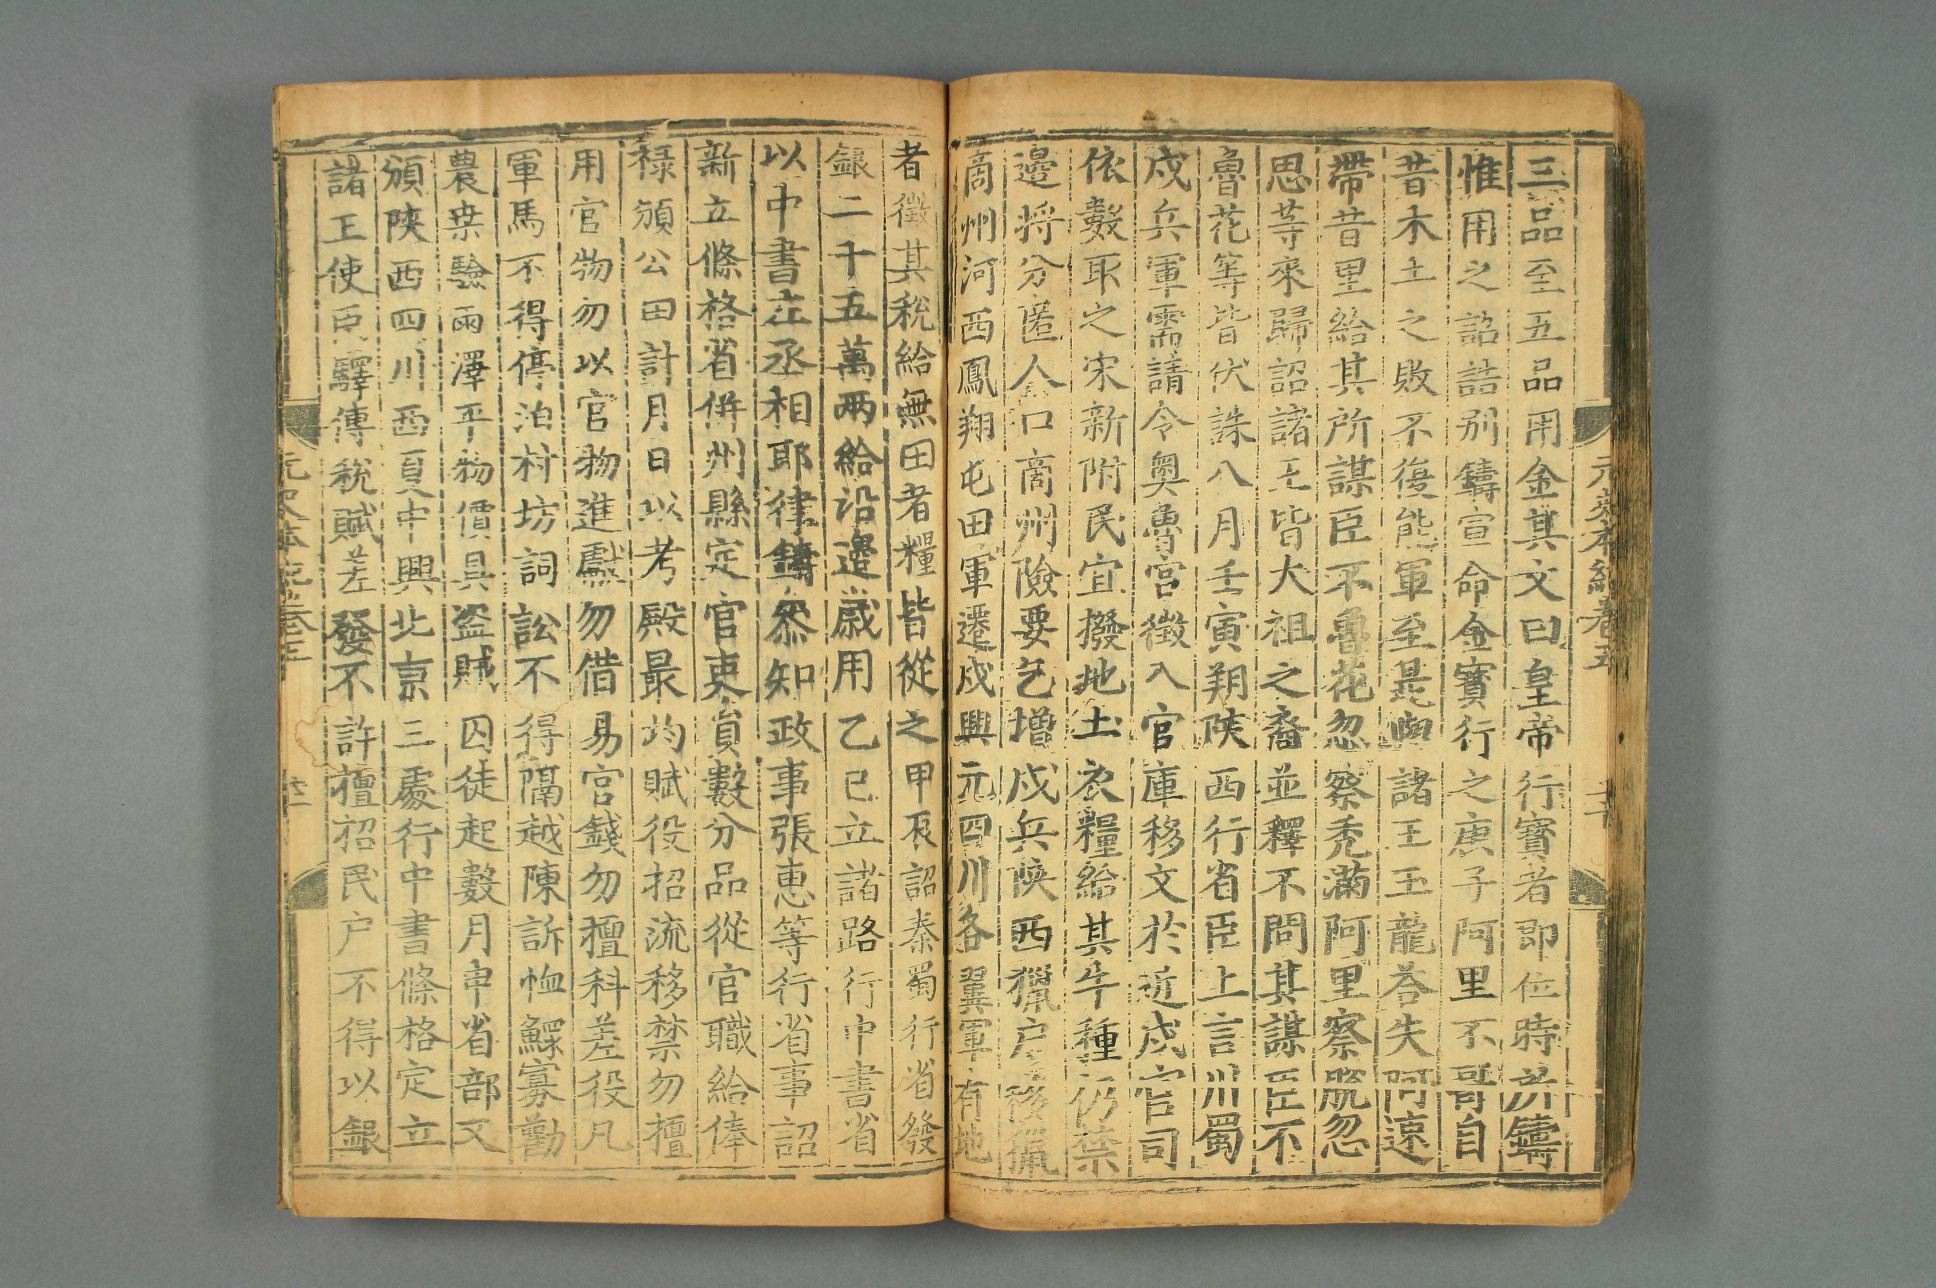 三品至五品用金其文曰皇帝行寳者即位時所鑄
惟用之詔誥别鑄宣命金寳行之庚子阿里不哥自
昔木土之敗不復能軍至是與諸王玉龍荅失阿速
帶昔里給其所謀臣不魯花忽察禿滿阿里察脱忽
思等來歸詔諸王皆大祖之裔並釋不問其謀臣不
魯花等皆伏誅八月壬寅朔陕西行省臣上言川蜀
戍兵軍需請令奥魯官徵入官庫移文於近戍官司
依數取之宋新附民宜撥地土衣糧給其牛種仍禁
邉将分匿人口商州險要乞增戍兵陕西獵户移獵
商州河西鳳翔屯田軍遷戍興元四川各翼軍有地
者徵其税給無田者糧皆從之甲辰詔秦蜀行省發
銀二十五萬两給沿邉歲用乙巳立諸路行中書省
以中書左丞相耶律鑄叅知政事張惠等行省事詔
新立條格省併州縣定官吏員數分品從官職給俸
禄頒公田計月日以考殿最均賦役招流移禁勿擅
用官物勿以官物進獻勿借易官錢勿擅科差役凡
軍馬不得停泊村坊詞訟不得隔越陳訴恤鰥寡勸
農桒驗雨澤平物價具盗賊囚徒起數月申省部又
頒陕西四川西夏中興北京三處行中書條格定立
諸王使臣驛傳税賦差發不許擅招民户不得以銀
元史本紀卷五